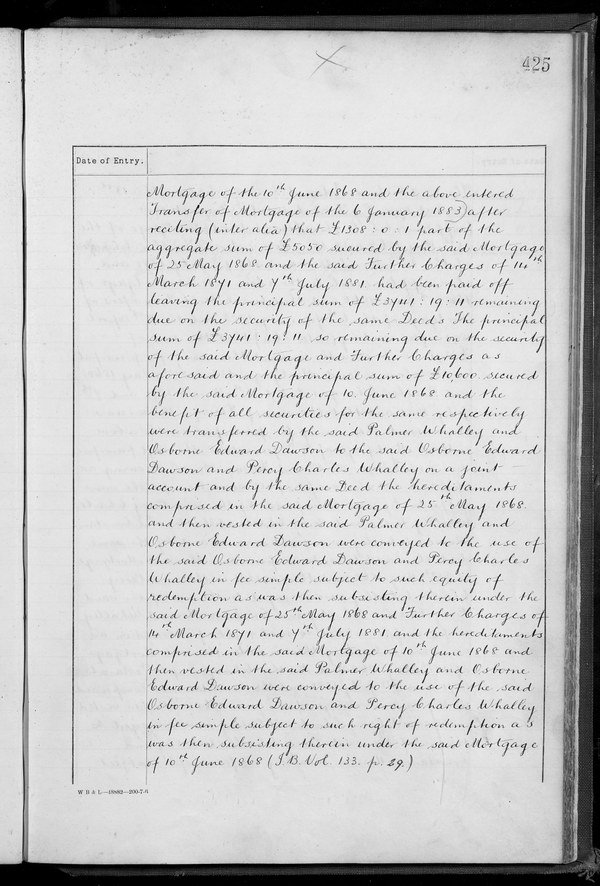 425
Date of Entry.
Mortgage of the 10th June 1868 and the above entered
Transfer of Mortgage of the 6 January 1883) after
reciting (inter alia) that £1308 : 0 : 1 part of the
aggregate sum of £5050 secured by the said Mortgage
of 25 May 1868 and the said Further Charges of 14th
March 1871 and 7th July 1881 had been paid off
leaving the principal sum of £3741 : 19 : 11 remaining
due on the security of the same Deeds The principal
sum of £3741 : 19 : 11 so remaining due on the security
of the said Mortgage and Further Charges as
aforesaid and the principal sum of £10,600 secured
by the said Mortgage of 10 June 1868 and the
benefit of all securities for the same respectively
were transferred by the said Palmer Whalley and
Osborne Edward Dawson to the said Osborne Edward
Dawson and Percy Charles Whalley on a joint
account and by the same Deed the hereditaments
comprised in the said Mortgage of 25th May 1868
and then vested in the said Palmer Whalley and
Osborne Edward Dawson were conveyed to the use of
the said Osborne Edward Dawson and Percy Charles
Whalley in fee simple subject to such equity of
redemption as was then subsisting therein under the
said Mortgage of 25th May 1868 and Further Charges of
14th March 1871 and 7th July 1881 and the hereditaments
comprised in the said Mortgage of 10th June 1868 and
then vested in the said Palmer Whalley and Osborne
Edward Dawson were conveyed to the use of the said
Osborne Edward Dawson and Percy Charles Whalley
in fee simple subject to such right of redemption as
was then subsisting therein under the said Mortgage
of 10th June 1868 (T.B. Vol. 133. p. 29.)
W B & L—49882—200-7-6